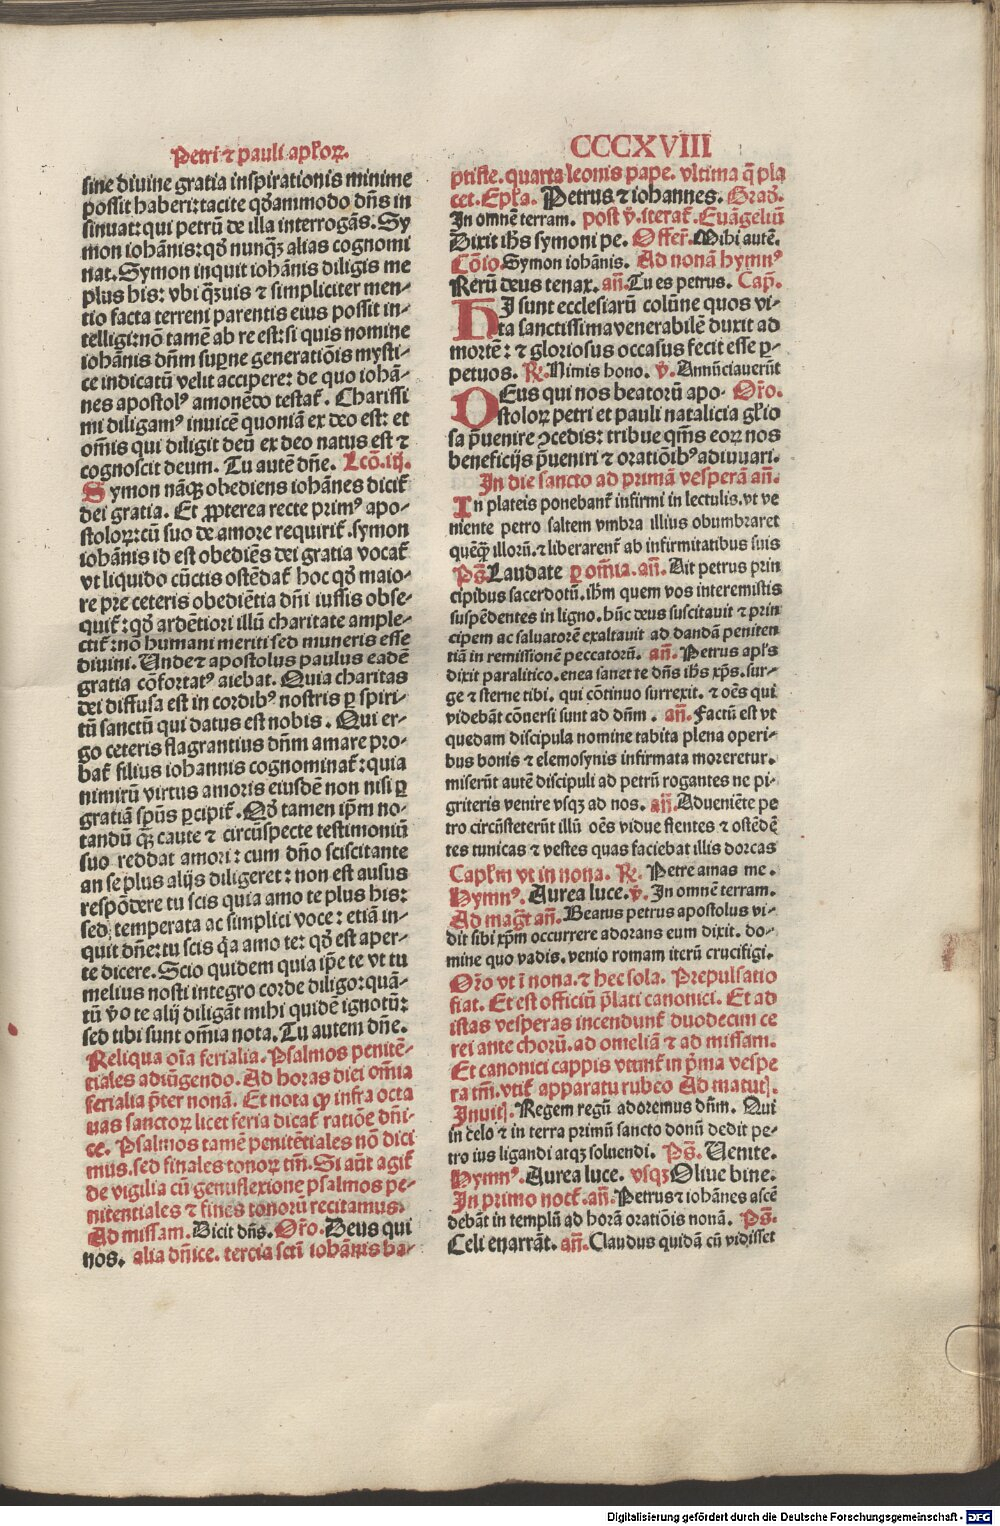 Petri ⁊ pauli apl'oꝝ.
sine divine gratia inspirationis minime
possit haberi: tacite qd̄ammodo dn̄s in
sinuat: qui petrū de illa interrogās. Sy
mon iohānis: qd̄ nunqꝫ alias cognomi
nat. Symon inquit iohānis diligis me
plus his: vbi qꝫuis ⁊ simpliciter men-
tio facta terreni parentis eius possit in-
telligi: nō tamē ab re est: si quis nomine
iohānis dn̄m suꝑne generatiōis mysti-
ce indicatū velit accipere: de quo iohā-
nes apostolꝰ amonēdo testat̄. Charissi
mi diligamꝰ invicē quoniā ex deo est: et
om̄is qui diligit deū ex deo natus est ⁊
cognoscit deum. Tu autē dn̄e. Lcō. iij.
Symon nāqꝫ obediens iohānes dicit̄
dei gratia. Et ꝓpterea recte primꝰ apo-
stoloꝝ: cū suo de amore requirit̄. symon
iohānis id est obediēs dei gratia vocat̄
vt liquido cūctis ostēdat̄ hoc qd̄ maio-
re pre ceteris obediētia dn̄i iussis obse-
quit̄: qd̄ ardētiori illū charitateample-
ctit̄: nō humani meriti sed muneris esse
divini. Unde ⁊ apostolus paulus eadē
gratia cōfortatꝰ aiebat. Quia charitas
dei diffusa est in cordibꝰ nostris ꝑ spiri-
tū sanctū qui datus est nobis. Qui er-
go ceteris flagrantius dn̄m amare pro-
bat̄ filius iohannis cognominat̄: quia
nimirū virtus amoris eiusdē non nisi ꝑ
gratiā sp̄us ꝑcipit̄. Qd̄ tamen ip̄m no-
tandū qꝫ caute ⁊ circūspecte testimoniū
suo reddat amori: cum dn̄o sciscitante
an se plus alijs diligeret: non est ausus
respōdere tu scis quia amo te plus his:
sed temperata ac simplici voce: etiā in-
quit dn̄e: tu scis q̄a amo te: qd̄ est aper-
te dicere. Scio quidem quia ip̄e te vt tu
melius nosti integro corde diligo: quā-
tū v̄o te alij diligāt mihi quidē ignotū:
sed tibi sunt om̄ia nota. Tu autem dn̄e.
Reliqua oīa ferialia. Psalmos penitē-
tiales adiūgendo. Ad horas diei om̄ia
ferialia p̄ter nonā. Et nota ꝙ infra octa
uas sanctoꝝ licet feria dicat̄ ratiōe dn̄i-
ce. Psalmos tamē penitētiales nō dici
mus. sed finales tonoꝝ tm̄. Si aūt agit̄
de vigilia cū genuflexione psalmos pe-
nitentiales ⁊ fines tonorū recitamus.
Ad missam. Dicit dn̄s. Or̄o. Deus qui
nos. alia dn̄ice. tercia scti iohānis ba-
CCCXVIII
ptiste. quarta leonis pape. vltima q̄ pla
cet. Epl'a. Petrus ⁊ iohannes. Grad̄.
In omnē terram. post v̄. iterat̄. Euāgeliū
Dixit ih̄s symoni pe. Offer̄. Mihi autē.
Cōio. Symon iohānis. Ad nonā hymnꝰ
Rerū deus tenax. an̄. Tu es petrus. Cap̄.
HI sunt ecclesiarū colūne quos vi-
ta sanctissima venerabilē duxit ad
mortē: ⁊ gloriosus occasus fecit esse ꝑ-
petuos. R̄. Nimis hono. v̄. Annūciauerūt
DEus qui nos beatorū apo- Or̄o.
stoloꝝ petri et pauli natalicia gl'io
sa p̄uenire ꝯcedis: tribue qm̄s eoꝝ nos
beneficijs p̄ueniri ⁊ oratiōibꝰ adiuuari.
In die sancto ad primā vesperā an̄.
In plateis ponebant̄ infirmi in lectulis. vt ve
niente petro saltem vmbra illius obumbraret
quēqꝫ illorū. ⁊ liberarent̄ ab infirmitatibus suis
Ps̄. Laudate ꝑ om̄ia. an̄. Ait petrus prin
cipibus sacerdotū. ih̄m quem vos interemistis
suspēdentes in ligno. hūc deus suscitauit ⁊ prin
cipem ac saluatorē exaltauit ad dandā peniten
tiā in remissionē peccatorū. an̄. Petrus apl's
dixit paralitico. enea sanet te dn̄s ih̄s xp̄s. sur-
ge ⁊ sterne tibi. qui cōtinuo surrexit. ⁊ oēs qui
videbāt cōuersi sunt ad dn̄m. an̄. Factū est vt
quedam discipula nomine tabita plena operi-
bus bonis ⁊ elemosynis infirmata moreretur.
miserūt autē discipuli ad petrū rogantes ne pi-
griteris venire vsqꝫ ad nos. an̄. Adueniēte pe
tro circūsteterūt illū oēs vidue flentes ⁊ ostēdē
tes tunicas ⁊ vestes quas faciebat illis dorcas
Capl'm vt in nona. R̄. Petre amas me.
Hymnꝰ. Aurea luce. v̄. In omnē terram.
Ad maḡt an̄. Beatus petrus apostolus vi-
dit sibi xp̄m occurrere adorans eum dixit. do-
mine quo vadis. venio romam iterū crucifigi.
Or̄o vt ī nona. ⁊ hec sola. Prepulsatio
fiat. Et est officiū p̄lati canonici. Et ad
istas vesperas incendunt̄ duodecim ce
rei ante chorū. ad omeliā ⁊ ad missam.
Et canonici cappis vtunt̄ in p̄ma vespe
ra tm̄. vtit̄ apparatu rubeo Ad matut̄.
Inuit̄. Regem regū adoremus dn̄m. Qui
in celo ⁊ in terra primū sancto donū dedit pe-
tro ius ligandi atqꝫ soluendi. Ps̄. Uenite.
Hymnꝰ. Aurea luce. vsqꝫ Oliue bine.
In primo noct̄. an̄. Petrus ⁊ iohānes ascē
debāt in templū ad horā oratiōis nonā. Ps̄.
Celi enarrāt. an̄. Claudus quidā cū vidisset
Digitalisierung gefördert durch die Deutsche Forschungsgemeinschaft - DFG